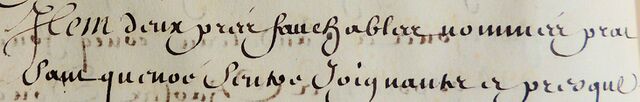 Item deux prez fauchables nommez prat
sant quenoé Seutve Joignantz et presque